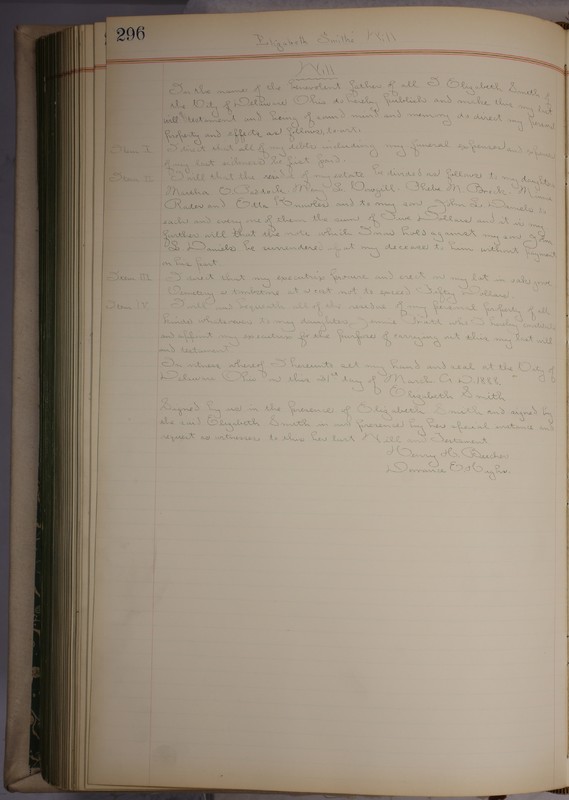 296
Elizabeth Smith's Will
Will
In the name of the Benevolent father of all I Elizabeth Smith of
the City of Delaware Ohio do hereby publish and make this my last
will & testament and being of sound mind and memory do direct my personal
property and effects as follows, to wit:
Item I. I direct that all of my debts including my funeral expenses and expenses
of my last sickness be first paid.
Item II. I will that the residue of my estate be divided as follows to my daughters
Martha Mary Phebe M. Minnie
and Etta and to my son John L. Daniels to
each and every one of them the sum of Five Dollars and it is my
further will that the note which I now hold against my son John
L. Daniels be surrendered up at my decease to him without payment
on his part
Item III. I direct that my executrix procure and erect on my lot in
Cemetery a tombstone at a cost not to exceed Fifty Dollars.
Item IV. I will and bequeath all of the residue of my personal property of all
kinds whatsoever to my daughter, Jennie who I hereby
and appoint my executrix for the purpose of carrying out this my last will
and testament
In witness whereof I hereunto set my hand and seal at the City of
Delaware Ohio on this 21st day of March A.D. 1888.
Elizabeth Smith
Signed by us in the presence of Elizabeth Smith and signed by
the said Elizabeth Smith in our presence by her special instance and
request as witnesses to this her last Will and Testament
Henry H.
E.